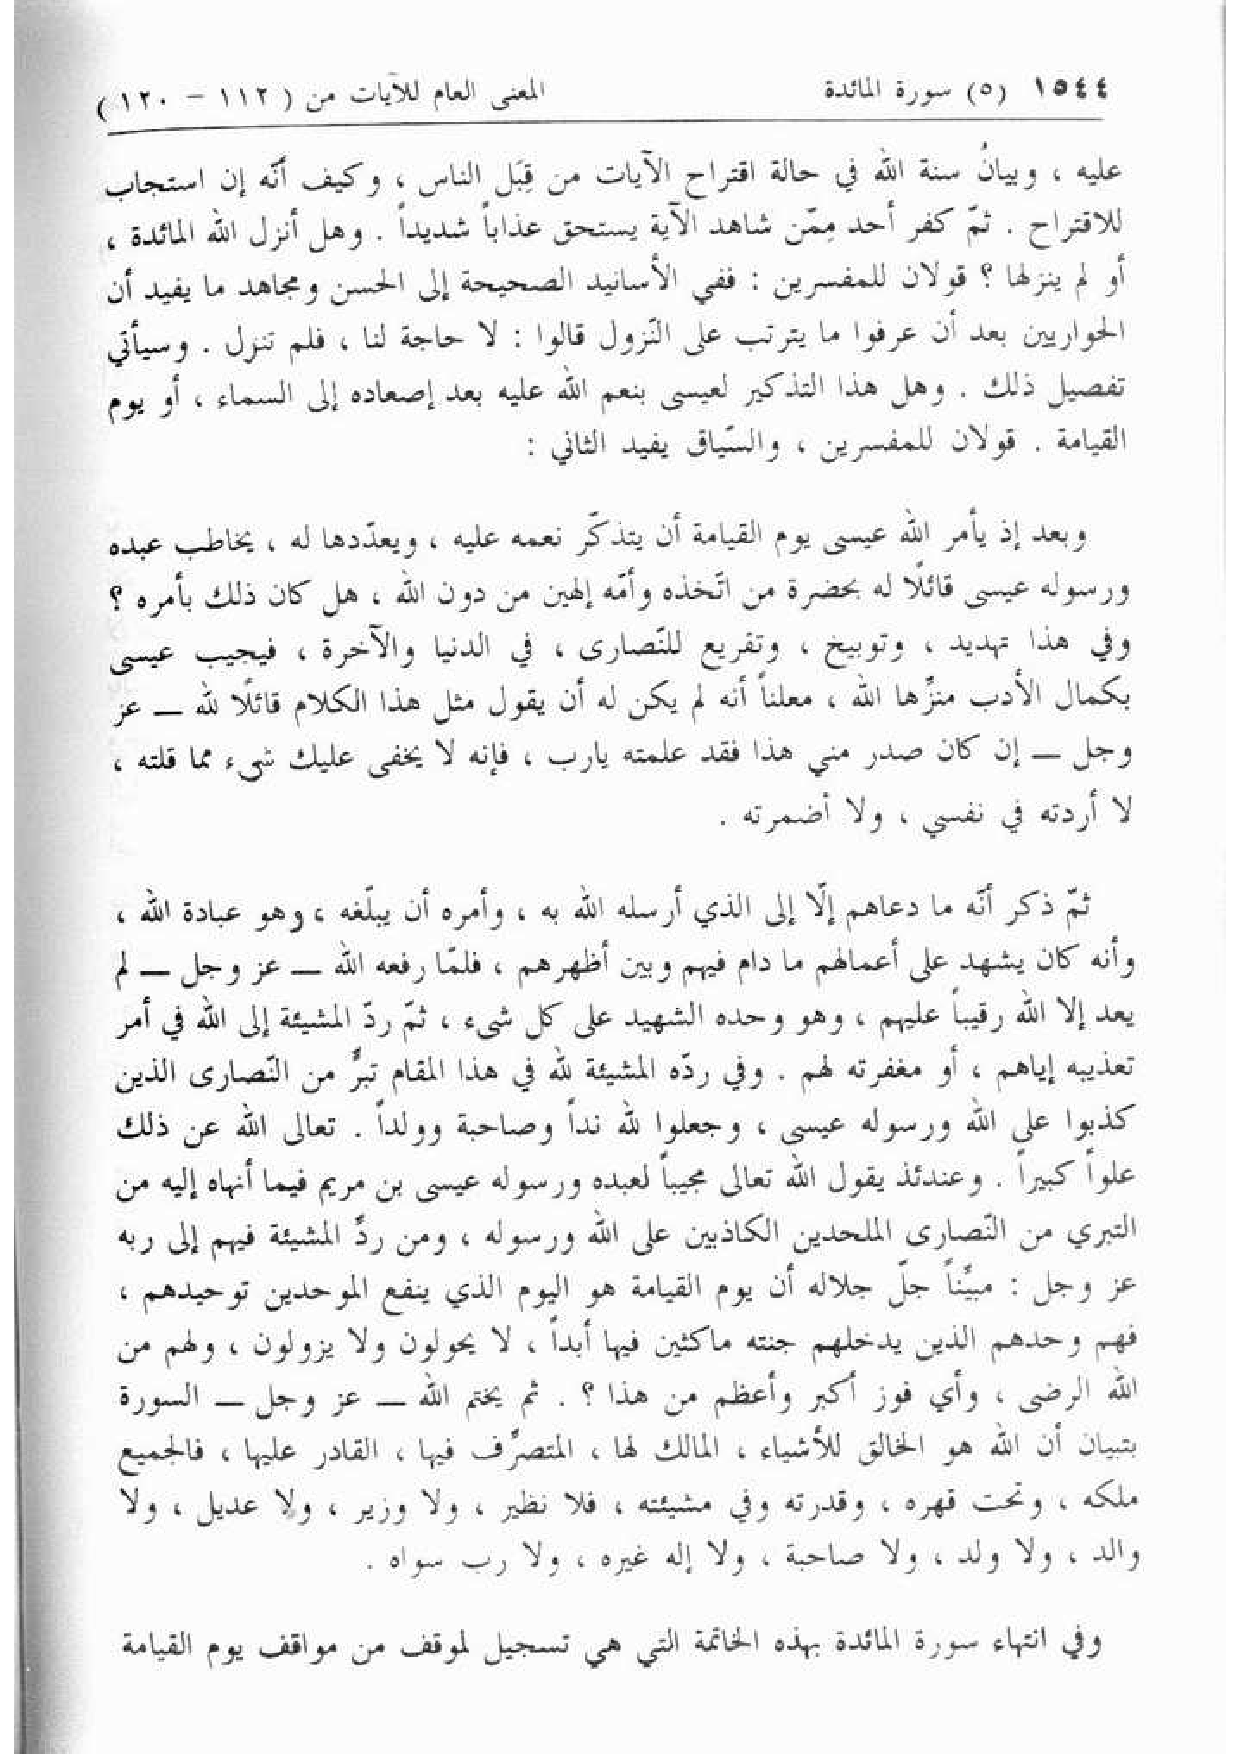 ١٥٤٤ (٥) سورة المائدة المعنى العام للآيات من ( ١١٢ – ١٢٠ )
عليه ، وبيانُ سنة الله في حالة اقتراح الآيات من قِبَل الناس ، وكيف أنّه إن استجاب
للاقتراح . ثمّ كفر أحد مِمّن شاهد الآية يستحق عذاباً شديداً . وهل أنزل الله المائدة ،
أو لم ينزلها ؟ قولان للمفسرين : ففي الأسانيد الصحيحة إلى الحسن ومجاهد ما يفيد أن
الحواريين بعد أن عرفوا ما يترتب على النّزول قالوا : لا حاجة لنا ، فلم تنزل . وسيأتي
تفصيل ذلك . وهل هذا التذكير لعيسى بنعم الله عليه بعد إصعاده إلى السماء ، أو يوم
القيامة . قولان للمفسرين ، والسّياق يفيد الثاني :
وبعد إذ يأمر الله عيسى يوم القيامة أن يتذكّر نعمه عليه ، ويعدّدها له ، يخاطب عبده
ورسوله عيسى قائلًا له بحضرة من اتّخذه وأمّه إلهين من دون الله ، هل كان ذلك بأمره ؟
وفي هذا تهديد ، وتوبيخ ، وتقريع للنّصارى ، في الدنيا والآخرة ، فيجيب عيسى
بكمال الأدب منزِّها الله ، معلناً أنه لم يكن له أن يقول مثل هذا الكلام قائلًا لله – عز
وجل – إن كان صدر مني هذا فقد علمته يارب ، فإنه لا يخفى عليك شىء مما قلته ،
لا أردته في نفسي ، ولا أضمرته .
ثمّ ذكر أنّه ما دعاهم إلّا إلى الذي أرسله الله به ، وأمره أن يبلّغه ، وهو عبادة الله ،
وأنه كان يشهد على أعمالهم ما دام فيهم وبين أظهرهم ، فلمّا رفعه الله – عز وجل – لم
يعد إلا الله رقيباً عليهم ، وهو وحده الشهيد على كل شىء ، ثمّ ردّ المشيئة إلى الله في أمر
تعذيبه إياهم ، أو مغفرته لهم . وفي ردّه المشيئة لله في هذا المقام تبرٍّ من النّصارى الذين
كذبوا على الله ورسوله عيسى ، وجعلوا لله نداً وصاحبة وولداً . تعالى الله عن ذلك
علواً كبيراً . وعندئذ يقول الله تعالى مجيباً لعبده ورسوله عيسى بن مريم فيما أنهاه إليه من
التبري من النّصارى الملحدين الكاذبين على الله ورسوله ، ومن ردِّ المشيئة فيهم إلى ربه
عز وجل : مبيِّناً جلّ جلاله أن يوم القيامة هو اليوم الذي ينفع الموحدين توحيدهم ،
فهم وحدهم الذين يدخلهم جنته ماكثين فيها أبداً ، لا يحولون ولا يزولون ، ولهم من
الله الرضى ، وأي فوز أكبر وأعظم من هذا ؟ . ثم يختم الله – عز وجل – السورة
بتبيان أن الله هو الخالق للأشياء ، المالك لها ، المتصرِّف فيها ، القادر عليها ، فالجميع
ملكه ، وتحت قهره ، وقدرته وفي مشيئته ، فلا نظير ، ولا وزير ، ولا عديل ، ولا
والد ، ولا ولد ، ولا صاحبة ، ولا إله غيره ، ولا رب سواه .
وفي انتهاء سورة المائدة بهذه الخاتمة التي هي تسجيل لموقف من مواقف يوم القيامة